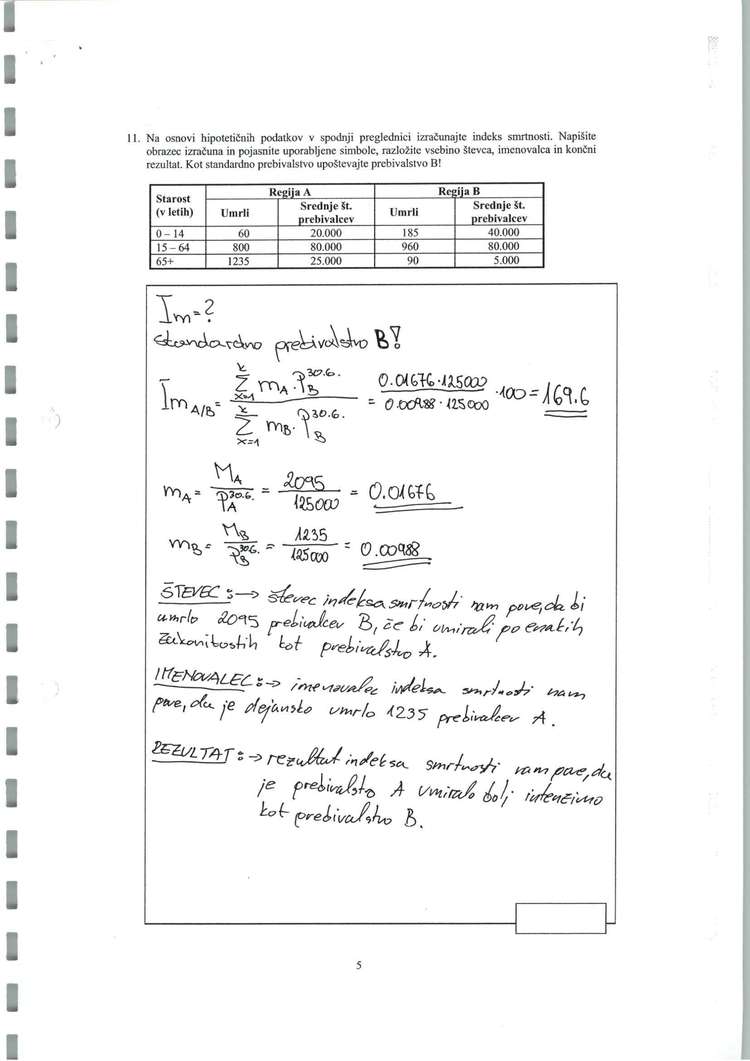 11. Na osnovi hipotetičnih podatkov v spodnji preglednici izračunajte indeks smrtnosti. Napišite
obrazec izračuna in pojasnite uporabljene simbole, razložite vsebino števca, imenovalca in končni
rezultat. Kot standardno prebivalstvo upoštevajte prebivalstvo B!
Starost (v letih) Regija A Regija B
Umrli Srednje št. prebivalcev Umrli Srednje št. prebivalcev
0 – 14 60 20.000 185 40.000
15 – 64 800 80.000 960 80.000
65+ 1235 25.000 90 5.000
Im=?
standardno prebivalstvo B!
Im A/B = Σ(x=1→k) mA · P_B^30.6. / Σ(x=1→k) mB · P_B^30.6. = 0.01676 · 125000 / 0.00988 · 125000 · 100 = 169.6
mA = MA / P_A^30.6. = 2095 / 125000 = 0.01676
mB = MB / P_B^30.6. = 1235 / 125000 = 0.00988
ŠTEVEC :→ števec indeksa smrtnosti nam pove, da bi
umrlo 2095 prebivalcev B, če bi umirali po enakih
zakonitostih kot prebivalstvo A.
IMENOVALEC :→ imenovalec indeksa smrtnosti nam
pove, da je dejansko umrlo 1235 prebivalcev A.
REZULTAT :→ rezultat indeksa smrtnosti nam pove, da
je prebivalsto A umiralo bolj intenzivno
kot prebivalstvo B.
5